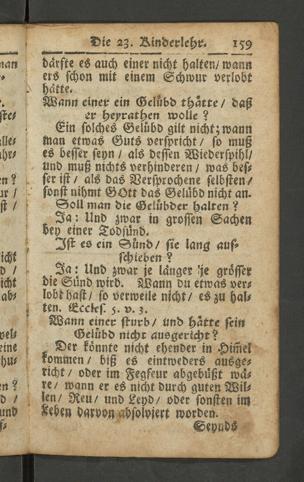 Die 23. Kinderlehr. 159
därfte es auch einer nicht halten/ wann
ers schon mit einem Schwur verlobt
hätte.
Wann einer ein Gelübd thätte/ daß
er heyrathen wolle?
Ein solches Gelübd gilt nicht; wann
man etwas Guts verspricht/ so muß
es besser seyn/ als dessen Wiederspihl/
und muß nichts verhinderen/ was bes-
ser ist/ als das Versprochene selbsten/
sonst nihmt GOtt das Gelübd nicht an.
Soll man die Gelübder halten?
Ja: Und zwar in grossen Sachen
bey einer Todsünd.
Ist es ein Sünd/ sie lang auf-
schieben?
Ja: Und zwar je länger/ je grösser
die Sünd wird. Wann du etwas ver-
lobt hast/ so verweile nicht/ es zu hal-
ten. Eccles. 5. v. 3.
Wann einer sturb/ und hätte sein
Gelübd nicht ausgericht?
Der könnte nicht ehender in Him̄el
kommen/ biß es eintweders ausge-
richt/ oder im Fegfeur abgebüßt wä-
re/ wann er es nicht durch guten Wil-
len/ Reu/ und Leyd/ oder sonsten im
Leben darvon absolviert worden.
Seynds